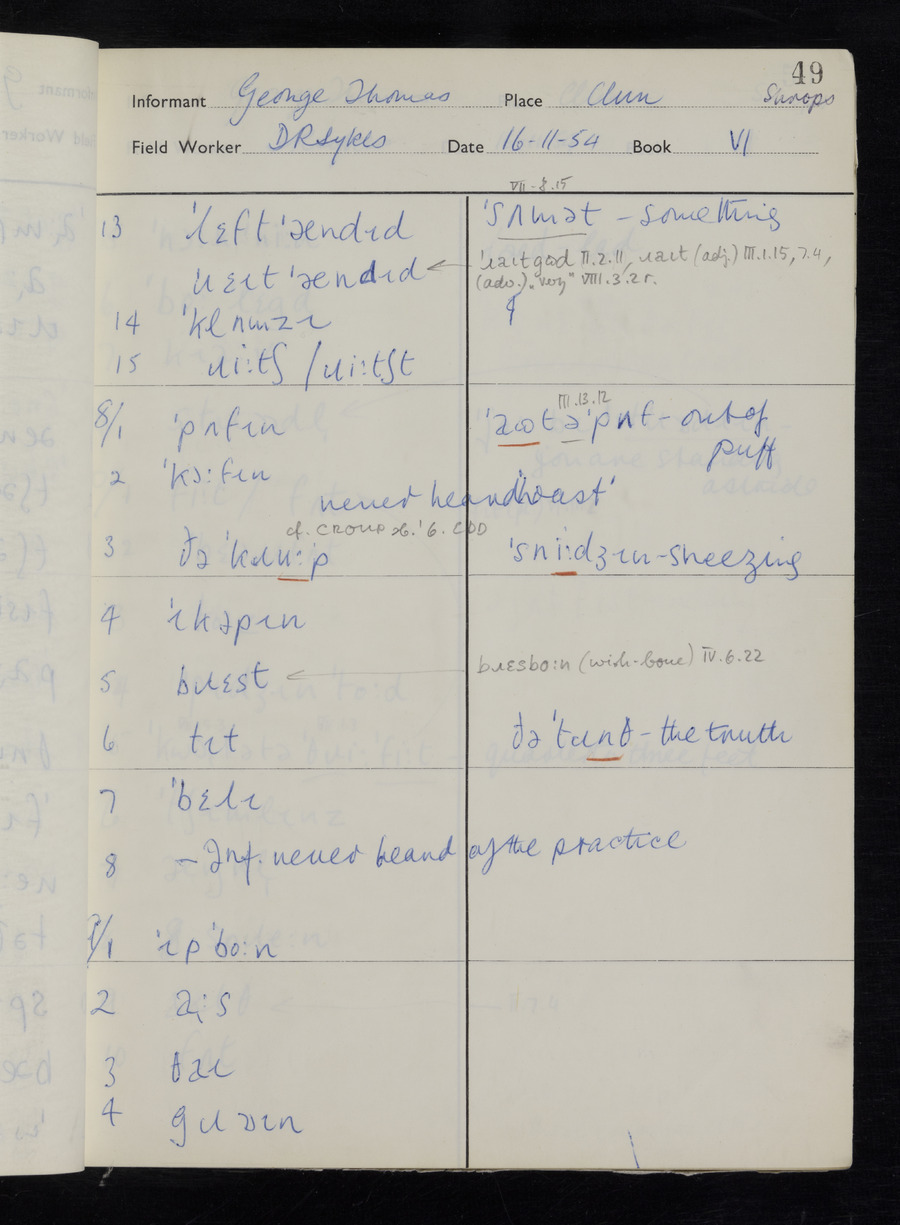 49
Informant George Thomas Place Clun Shrops
Field Worker DR Sykes Date 16-11-54 Book VI
VII-8.15
13 ˈlɛftˈændɪd ˈsʌmət - something
ˈɹɛɪtˈændɪd ← ˈɹaɪtgʊd II.2.11, ɹaɪt (adj) III.1.15, 7.4,
(adv.) "very" VIII.3.2r.
14 ˈklʌmzɪ
15 ɹiːtʃ / ɹiːtʃt
III.13.12
8/1 ˈpʌfɪn ˈəʊt ə ˈpʌf - out of
puff
2 ˈkɔːfɪn
never heard 'hoast'
cf. CROUP
3 ðə ˈkɹuːp ˈsniːdʒɪn - sneezing
4 ˈɪkəpɪn
5 bɹɛst ← bɹɛsboːn (wish-bone) IV.6.22
6 tɪt ðə ˈtɹuθ - the truth
7 ˈbɛlɪ
8 - Inf. never heard of the practice
9/1 ˈɪpˈboːn
2
3 θəɪ
4 gɹɔɪn